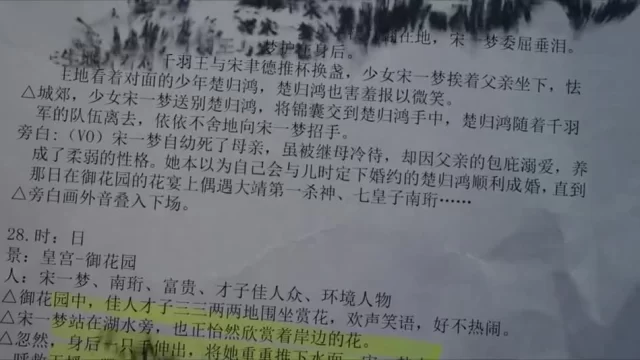 梦护在身后。
在地，宋一梦委屈垂泪。
千羽王与宋聿德推杯换盏，少女宋一梦挨着父亲坐下，怯
生地看着对面的少年楚归鸿，楚归鸿也害羞报以微笑。
△城郊，少女宋一梦送别楚归鸿，将锦囊交到楚归鸿手中，楚归鸿随着千羽
军的队伍离去，依依不舍地向宋一梦招手。
旁白：(VO）宋一梦自幼死了母亲，虽被继母冷待，却因父亲的包庇溺爱，养
成了柔弱的性格。她本以为自己会与儿时定下婚约的楚归鸿顺利成婚，直到
那日在御花园的花宴上偶遇大靖第一杀神、七皇子南珩……
△旁白画外音叠入下场。
28. 时：日
景：皇宫-御花园
人：宋一梦、南珩、富贵、才子佳人众、环境人物
△御花园中，佳人才子三三两两地围坐赏花，欢声笑语，好不热闹。
△宋一梦站在湖水旁，也正怡然欣赏着岸边的花。
△忽然，身后一只手伸出，将她重重推下水面，宋一梦